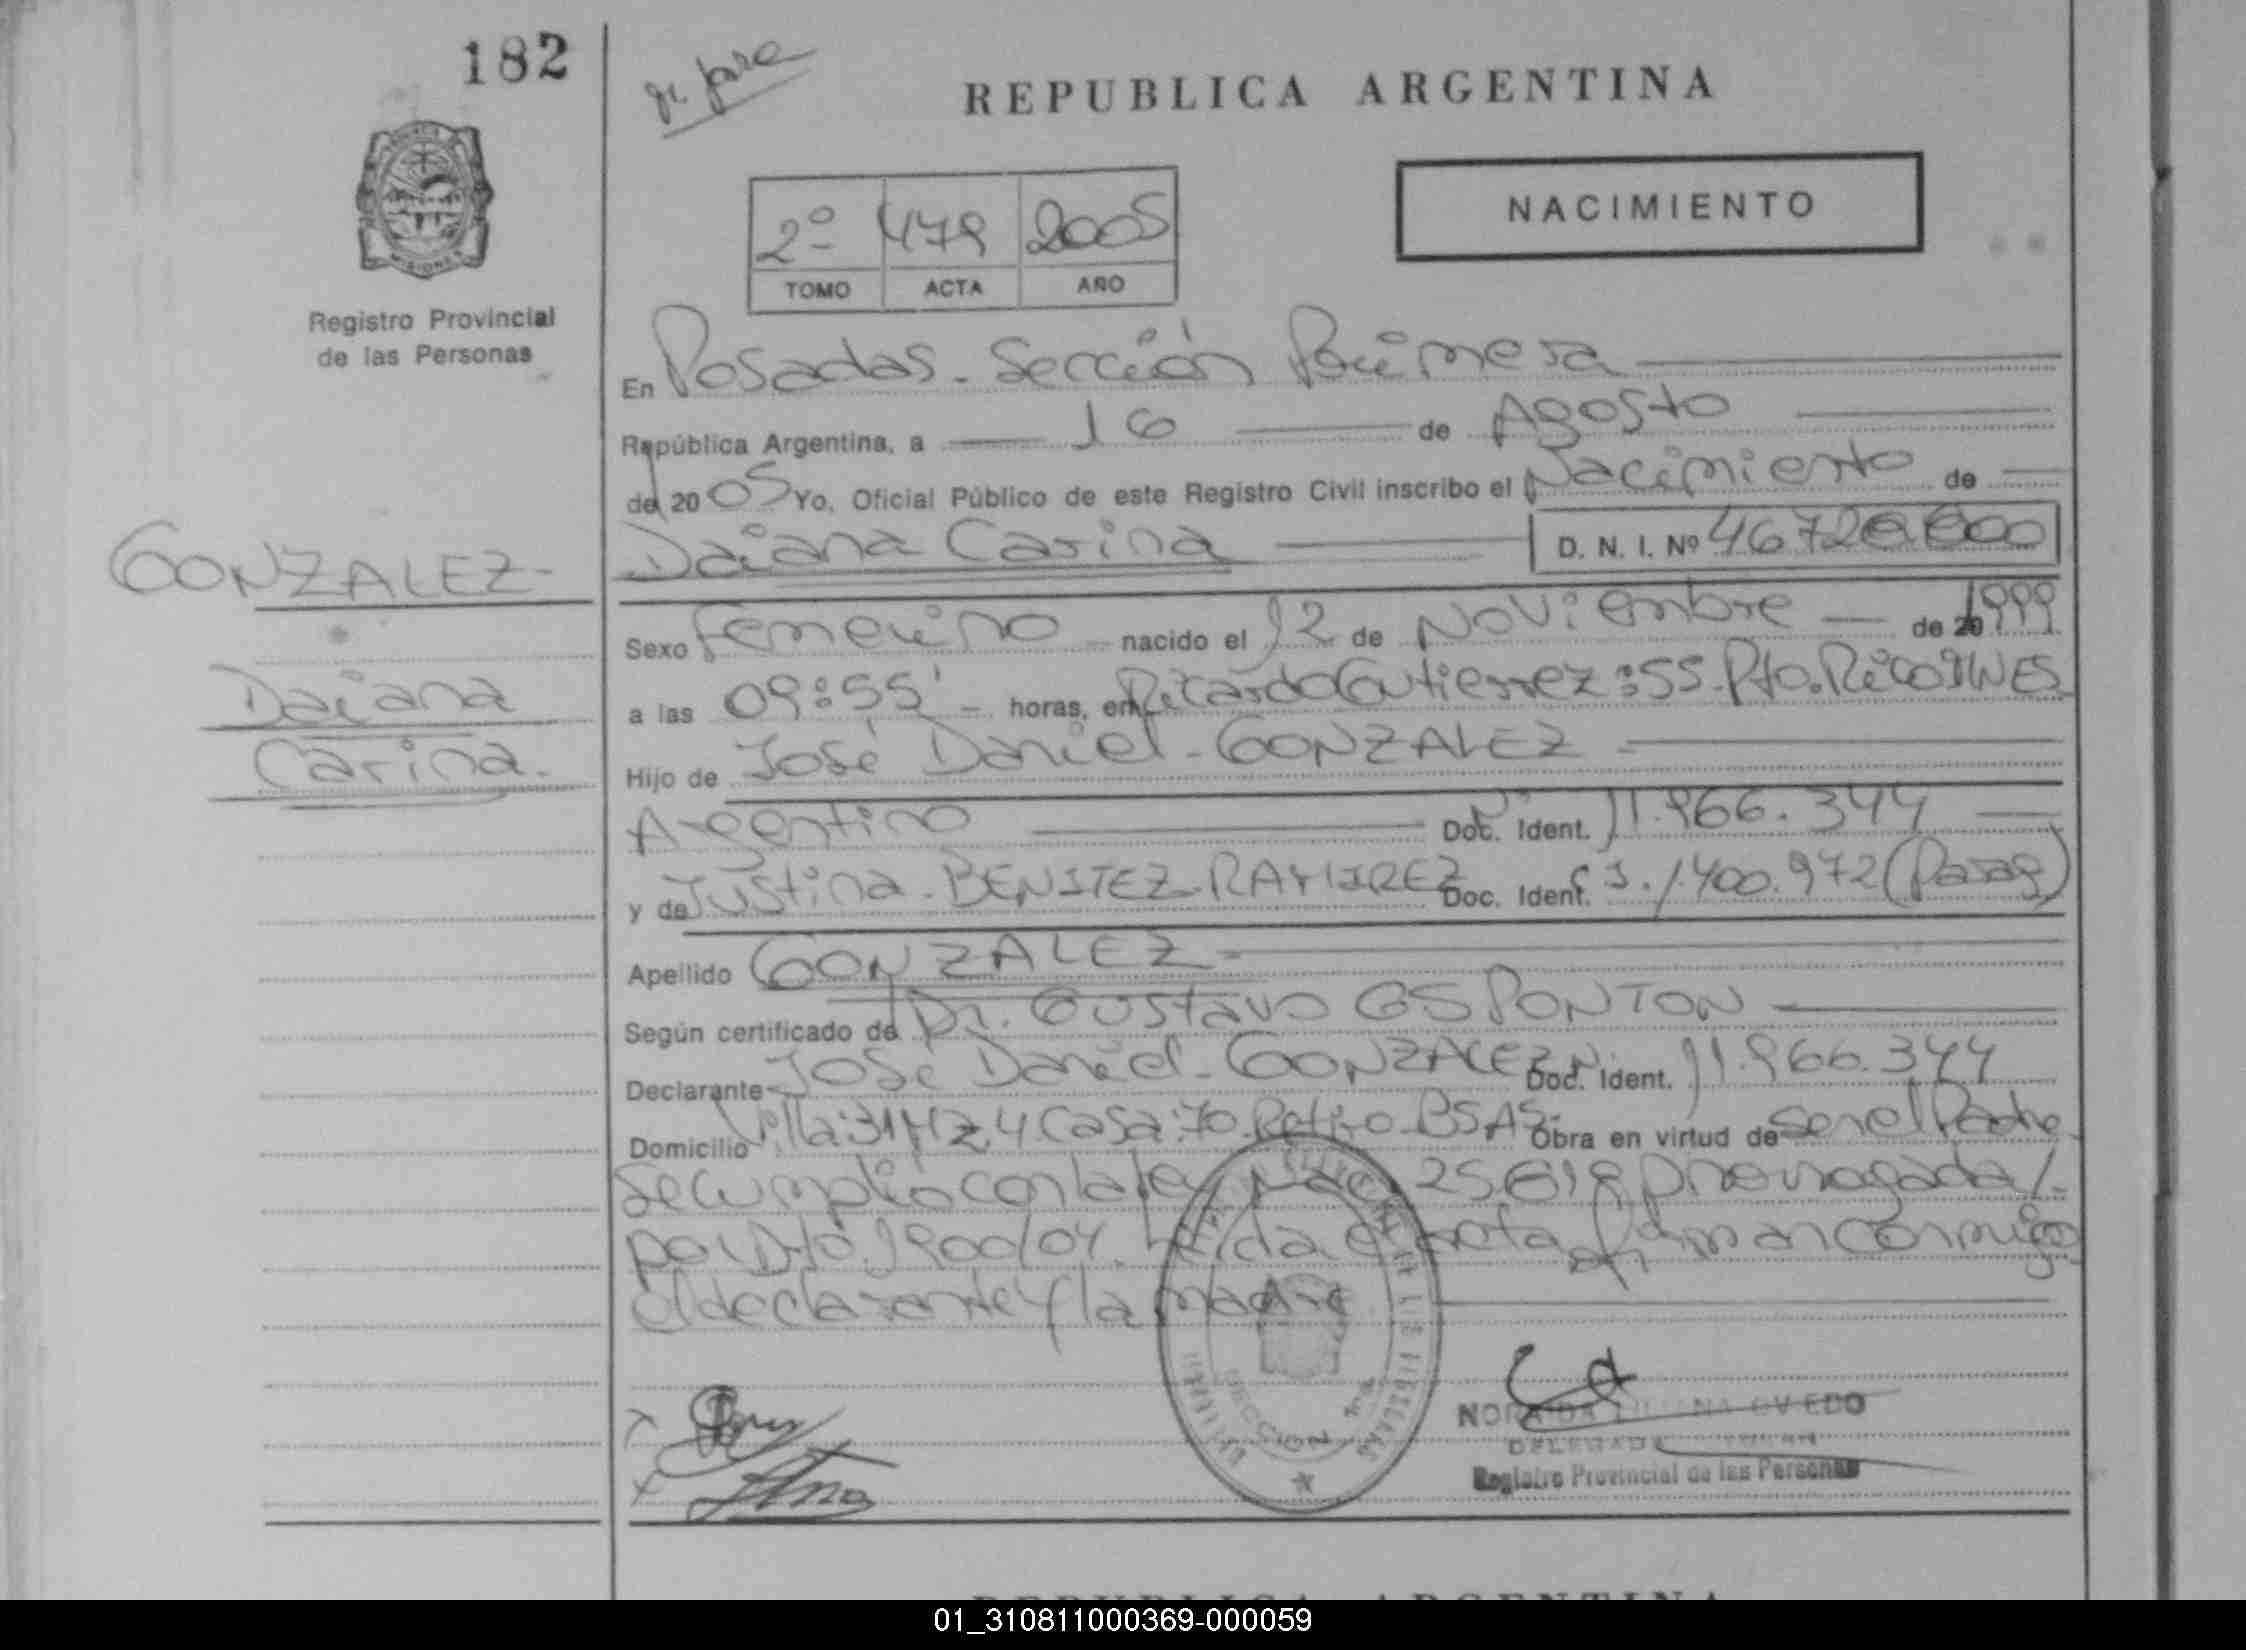 182
REPUBLICA ARGENTINA
MISIONES
Registro Provincial
de las Personas
NACIMIENTO
2º 479 2005
TOMO ACTA AÑO
En Posadas - Sección Primera
República Argentina, a 16 de Agosto
del 2005 Yo, Oficial Público de este Registro Civil inscribo el Nacimiento de
Daiana Carina D. N. I. Nº
GONZALEZ-
Daiana
Carina.
Sexo femenino nacido el 12 de Noviembre de 1999
a las 09:55' horas, en Ricardo Gutierrez:55-Pto. Rico
Hijo de José Daniel - GONZALEZ
Argentino Doc. Ident. Nº 11.966.344
y de Justina - BENITEZ RAMIREZ Doc. Ident. C.I. 1.400.972 (Parag)
Apellido GONZALEZ
Según certificado de Dr. Gustavo GSPONTON
Declarante José Daniel - GONZALEZ Doc. Ident. Nº 11.966.344
Domicilio Villa:31 Mz.4 Casa:70-Retiro-BS AS- Obra en virtud de ser el Padre
Se cumplió con la ley Nac. 25.819 prorrogada
por Dto. 1900/04. Leida el acta firman conmigo
el declarante y la madre
SECCION 1ra
NORAIDA LILIANA OVIEDO
DELEGADA TITULAR
Registro Provincial de las Personas
REPUBLICA ARGENTINA
01_310811000369-000059